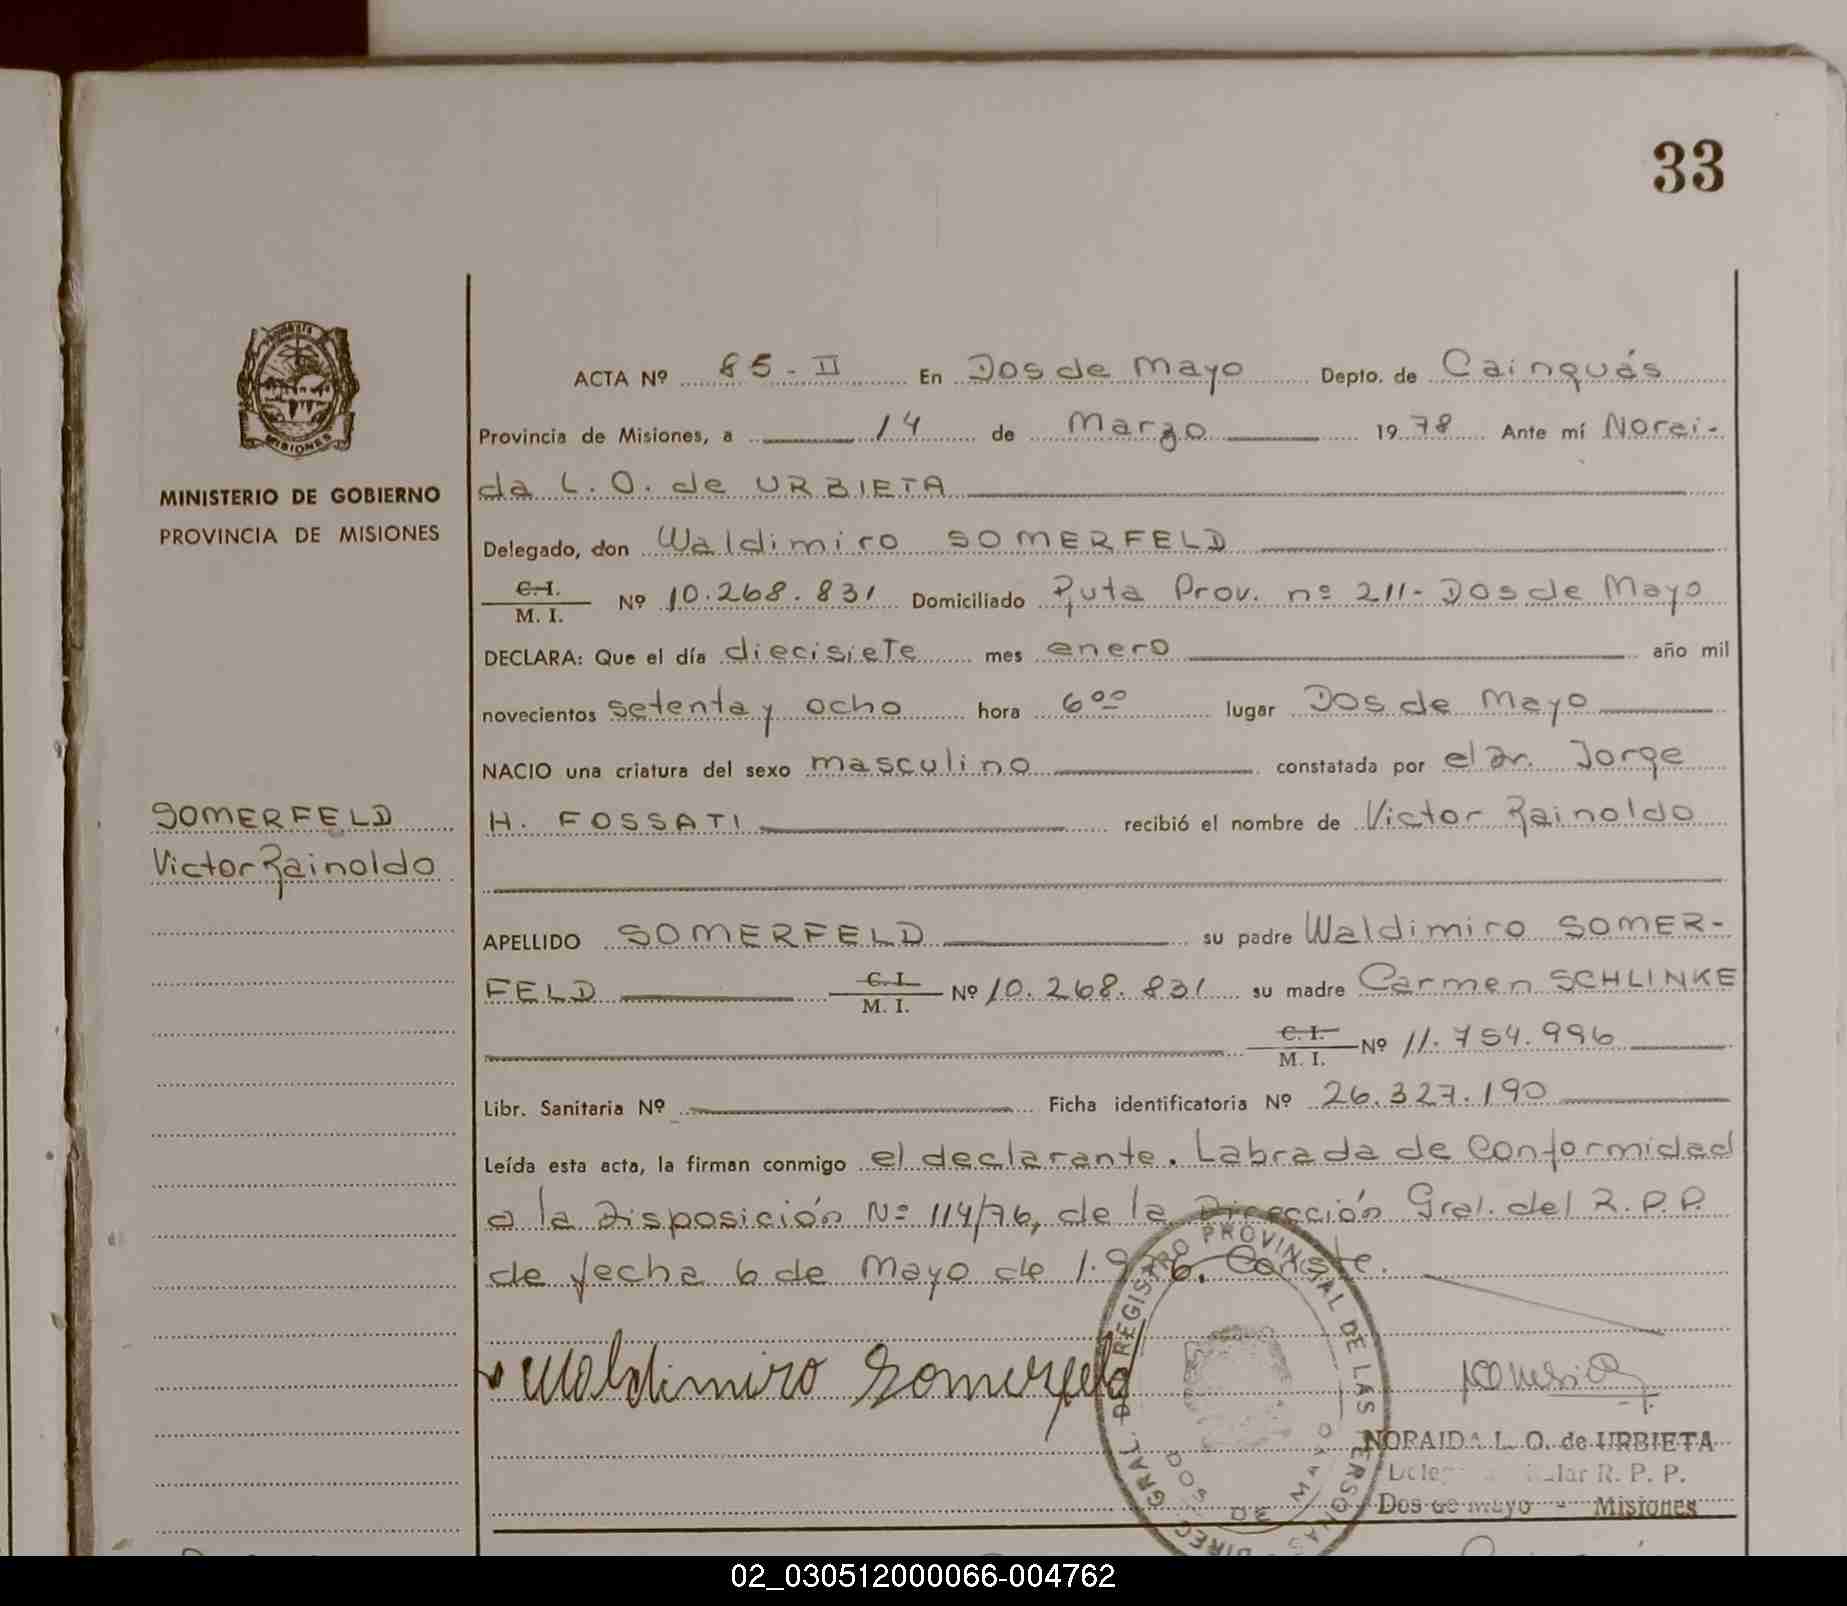 33
PROVINCIA
MISIONES
MINISTERIO DE GOBIERNO
PROVINCIA DE MISIONES
SOMERFELD
Victor Rainoldo
ACTA Nº 85-II En Dos de Mayo Depto. de Cainguás
Provincia de Misiones, a 14 de Marzo 1978 Ante mí Norai-
da L. O. de URBIETA
Delegado, don Waldimiro SOMERFELD
C. I.
M. I. Nº 10.268.831 Domiciliado Ruta Prov. nº 211- Dos de Mayo
DECLARA: Que el día diecisiete mes enero año mil
novecientos setenta y ocho hora 6ºº lugar Dos de Mayo
NACIO una criatura del sexo masculino constatada por el Dr. Jorge
H. FOSSATI recibió el nombre de Victor Rainoldo
APELLIDO SOMERFELD su padre Waldimiro SOMER-
FELD C. I.
M. I. Nº 10.268.831 su madre Carmen SCHLINKE
C. I.
M. I. Nº 11.754.996
Libr. Sanitaria Nº Ficha identificatoria Nº 26.327.190
Leída esta acta, la firman conmigo el declarante. Labrada de Conformidad
a la Disposición Nº 114/76, de la Dirección Gral. del R.P.P.
de fecha 6 de Mayo de 1.976. Conste.
Waldimiro Somerfeld
DIREC. GRAL. DE REGISTRO PROVINCIAL DE LAS PERSONAS
DOS DE MAYO
NORAIDA L. O. de URBIETA
R. P. P.
Dos de Mayo - Misiones
02_030512000066-004762